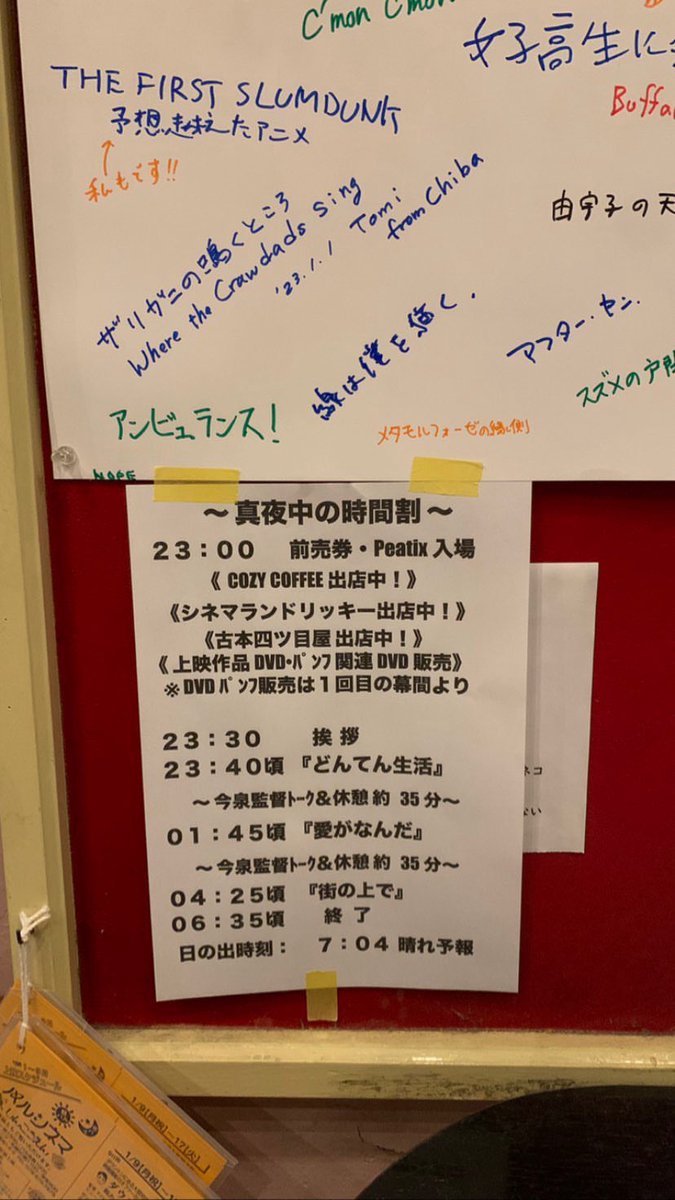 C'mon C'mon
女子高生に
THE FIRST SLUMDUNK
予想を超えたアニメ
Buffa
↑
私もです!!
由宇子の天
ザリガニの鳴くところ
Where the Crawdads Sing
'23.1.1 Tomi
from Chiba
線は僕を描く.
アフター・ヤン.
スズメの戸
アンビュランス!
メタモルフォーゼの縁側
NOPE
～真夜中の時間割～
23：00 前売券・Peatix 入場
《 COZY COFFEE 出店中！》
《シネマランドリッキー出店中！》
《古本四ツ目屋 出店中！》
《 上映作品 DVD・ﾊﾟﾝﾌ 関連 DVD 販売》
※ DVD ﾊﾟﾝﾌ販売は１回目の幕間より
23：30 挨 拶
23：40頃 『どんてん生活』
～今泉監督ﾄｰｸ＆休憩 約 35 分～
01：45頃 『愛がなんだ』
～今泉監督トーク＆休憩 約 35 分～
04：25頃 『街の上で』
06：35頃 終 了
日の出時刻： 7：04 晴れ予報
ネコ
ない
1/9[月祝]ー17[火]
1/9[月祝]ー